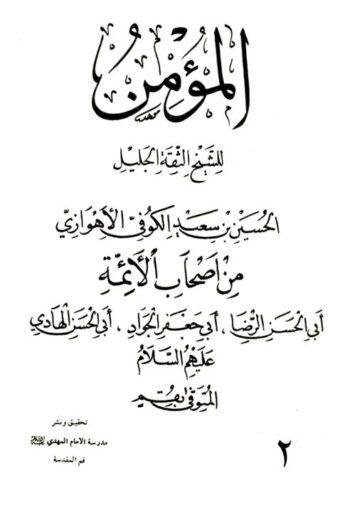 المؤمن
للشيخ الثقة الجليل
الحسين بن سعيد الكوفي الأهوازي
من أصحاب الأئمة
أبي الحسن الرضا، أبي جعفر الجواد، أبي الحسن الهادي
عليهم السلام
المتوفى بقم
تحقيق ونشر
مدرسة الامام المهدي
قم المقدسة
٢